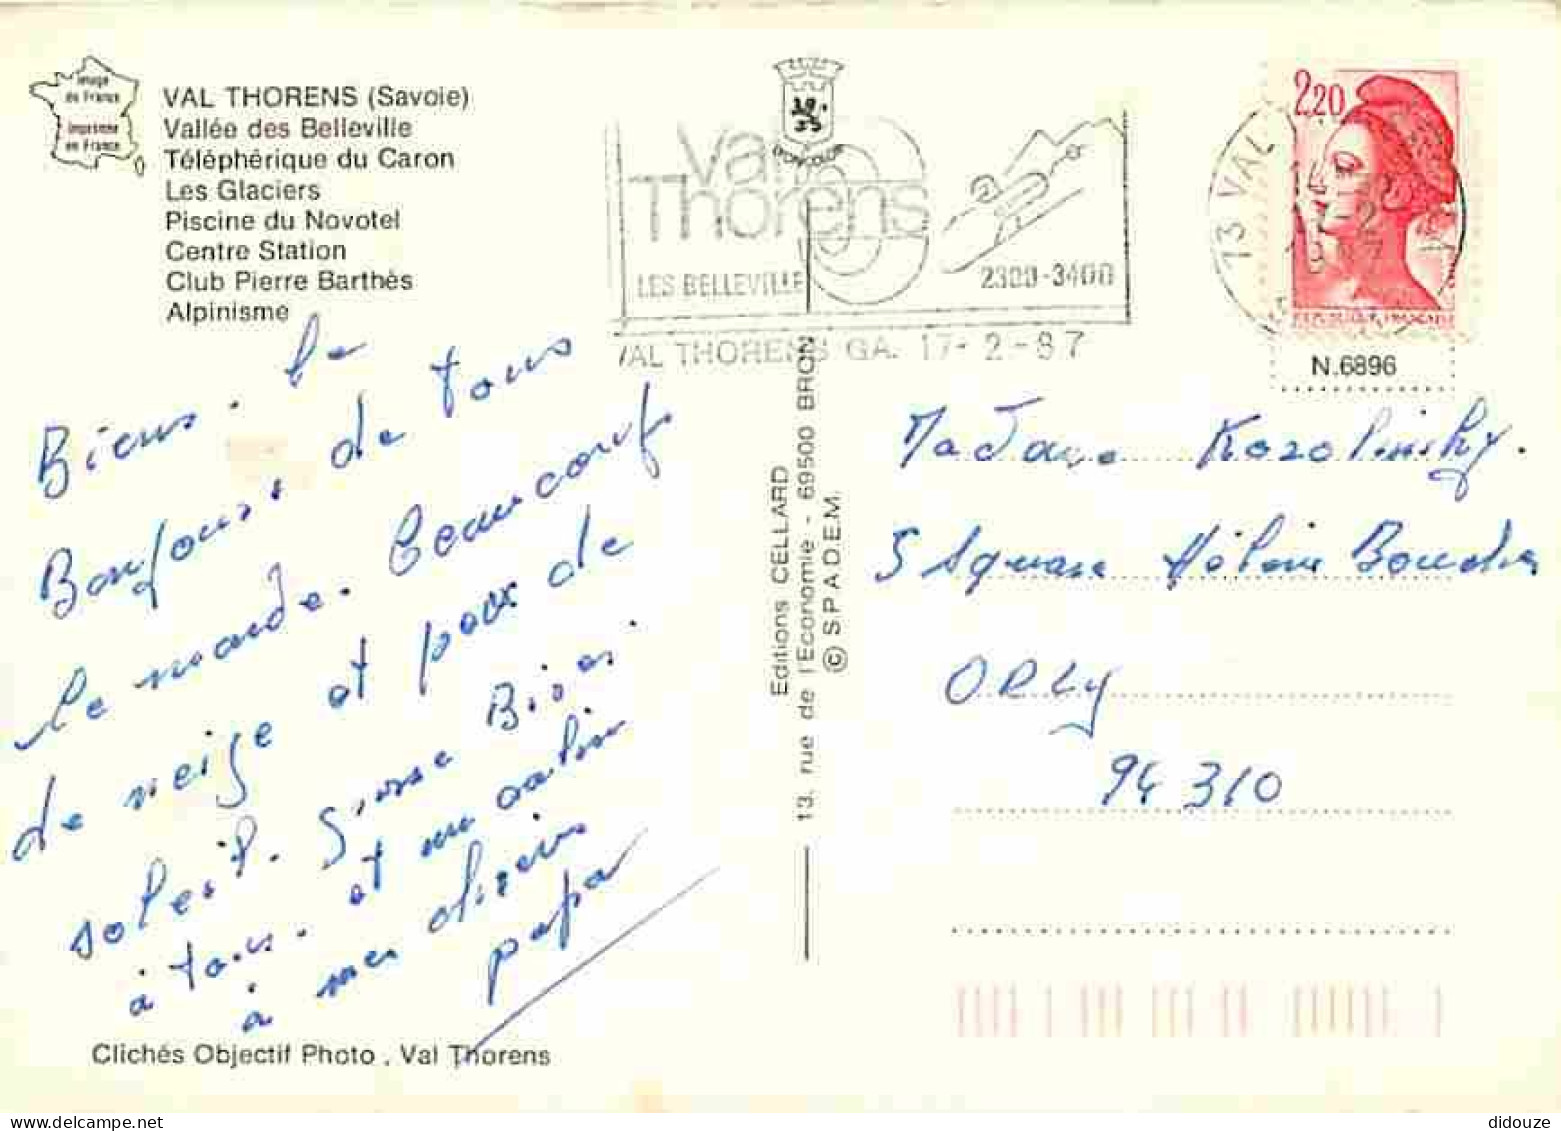 Image
de France
Imprimée
en France
VAL THORENS (Savoie)
Vallée des Belleville
Téléphérique du Caron
Les Glaciers
Piscine du Novotel
Centre Station
Club Pierre Barthès
Alpinisme
LYONCOLOR
Val
Thorens
LES BELLEVILLE
2300-3400
VAL THORENS GA. 17-2-87
73 VAL
2.20
REPUBLIQUE FRANÇAISE
N.6896
le
Bonjour, de tous
le monde. beaucoup
de neige et pas de
soleil. Grosse Bises.
à tous. et un calin
à mes chiens
papa
Editions CELLARD
13, rue de l'Economie - 69500 BRON
© S.P.A.D.E.M.
Madame Kozolinsky.
5 square Hélène Boucher
ORLY
94 310
Clichés Objectif Photo . Val Thorens
didouze